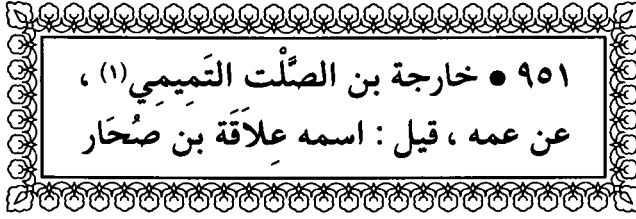 ٩٥١ • خارجة بن الصَّلْت التَمِيمِي (١) ،
عن عمه ، قيل : اسمه عِلَاقَة بن صُحَار